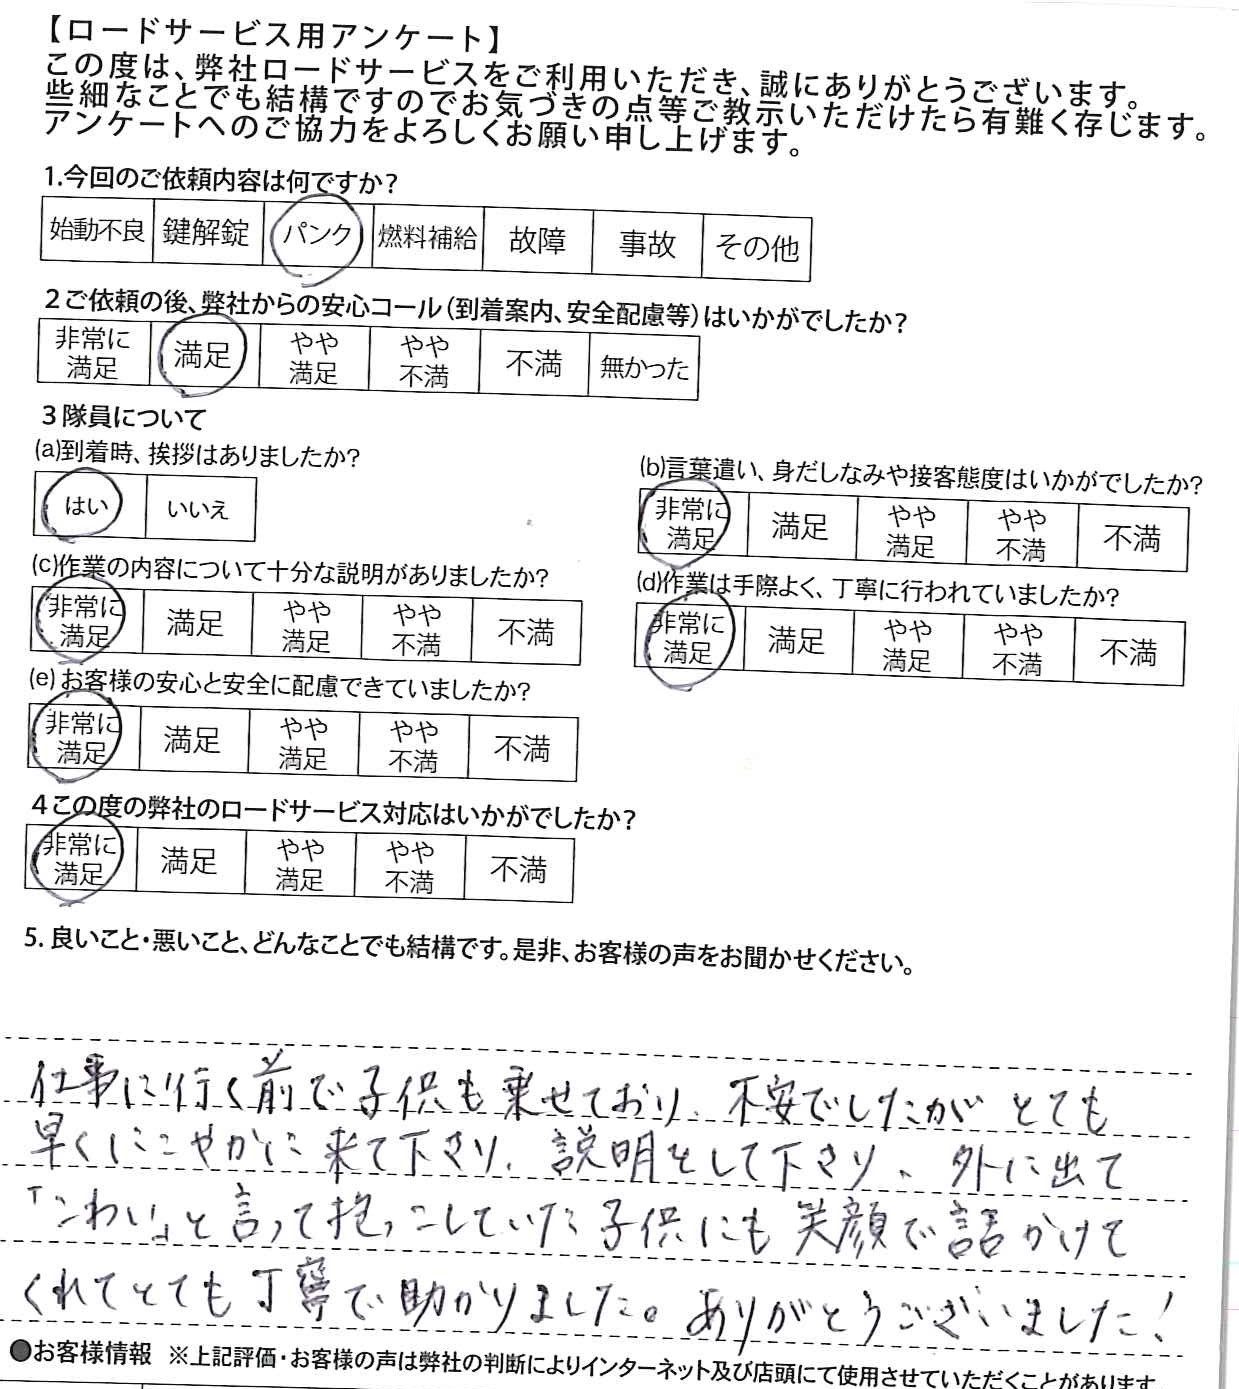 【ロードサービス用アンケート】
この度は、弊社ロードサービスをご利用いただき、誠にありがとうございます。
些細なことでも結構ですのでお気づきの点等ご教示いただけたら有難く存じます。
アンケートへのご協力をよろしくお願い申し上げます。
1.今回のご依頼内容は何ですか？
始動不良 鍵解錠 パンク 燃料補給 故障 事故 その他
2ご依頼の後、弊社からの安心コール(到着案内、安全配慮等)はいかがでしたか？
非常に満足 満足 やや満足 やや不満 不満 無かった
3隊員について
(a)到着時、挨拶はありましたか？
はい いいえ
(b)言葉遣い、身だしなみや接客態度はいかがでしたか？
非常に満足 満足 やや満足 やや不満 不満
(c)作業の内容について十分な説明がありましたか？
非常に満足 満足 やや満足 やや不満 不満
(d)作業は手際よく、丁寧に行われていましたか？
非常に満足 満足 やや満足 やや不満 不満
(e)お客様の安心と安全に配慮できていましたか？
非常に満足 満足 やや満足 やや不満 不満
4この度の弊社のロードサービス対応はいかがでしたか？
非常に満足 満足 やや満足 やや不満 不満
5. 良いこと・悪いこと、どんなことでも結構です。是非、お客様の声をお聞かせください。
仕事に行く前で子供も乗せており、不安でしたがとても
早くにこやかに来て下さり、説明をして下さり、外に出て
「こわい」と言って抱っこしていた子供にも笑顔で話かけて
くれてとても丁寧で助かりました。ありがとうございました！
●お客様情報 ※上記評価・お客様の声は弊社の判断によりインターネット及び店頭にて使用させていただくことがあります。